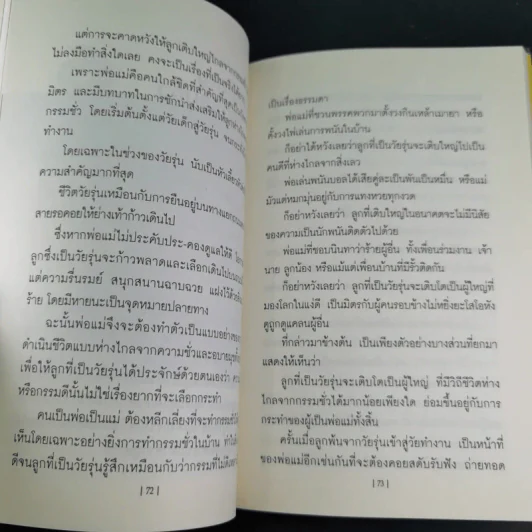 แต่การจะคาดหวังให้ลูกเติบใหญ่ไกลจาก
ไม่ลงมือทำสิ่งใดเลย คงจะเป็นเรื่องที่เป็นจริงได้
เพราะพ่อแม่คือคนใกล้ชิดที่สำคัญที่สุด
มิตร และมีบทบาทในการชักนำส่งเสริมให้ลูก
กรรมชั่ว โดยเริ่มต้นตั้งแต่วัยเด็กสู่วัยรุ่น จน
ทำงาน
โดยเฉพาะในช่วงของวัยรุ่น นับเป็นหัวเลี้ยว
ความสำคัญมากที่สุด
ชีวิตวัยรุ่นเหมือนกับการยืนอยู่บนทางแยก
สายรอคอยให้ย่างเท้าก้าวเดินไป
ซึ่งหากพ่อแม่ไม่ประคับประคองดูแลให้ดี
ลูกซึ่งเป็นวัยรุ่นจะก้าวพลาดและเลือกเดินไปบน
แต่ความรื่นรมย์ สนุกสนานฉาบฉวย แฝงไว้ด้วย
ร้าย โดยมีหายนะเป็นจุดหมายปลายทาง
ฉะนั้นพ่อแม่จึงจะต้องทำตัวเป็นแบบอย่างของ
ดำเนินชีวิตแบบห่างไกลจากความชั่วและอบายมุข
เพื่อให้ลูกที่เป็นวัยรุ่นได้ประจักษ์ด้วยตนเองว่า
หรือกรรมดีนั้นไม่ใช่เรื่องยากที่จะเลือกกระทำ
คนเป็นพ่อเป็นแม่ ต้องหลีกเลี่ยงที่จะทำกรรมชั่ว
เห็นโดยเฉพาะอย่างยิ่งการทำกรรมชั่วในบ้าน
ดีจนลูกที่เป็นวัยรุ่นรู้สึกเหมือนกับว่ากรรมที่ไม่ดี
| 72 |
เป็นเรื่องธรรมดา
พ่อแม่ที่ชวนพรรคพวกมาตั้งวงกินเหล้าเมายา หรือ
ตั้งวงไพ่เล่นการพนันในบ้าน
ก็อย่าได้หวังเลยว่าลูกที่เป็นวัยรุ่นจะเติบใหญ่ไปเป็น
คนดีที่ห่างไกลจากสิ่งเลว
พ่อเล่นพนันบอลได้เสียคู่ละเป็นพันเป็นหมื่น หรือแม่
มัวแต่หมกมุ่นอยู่กับการแทงหวยทุกงวด
ก็อย่าหวังเลยว่า ลูกที่เติบใหญ่ในอนาคตจะไม่มีนิสัย
ของความเป็นนักพนันติดตัวไปด้วย
พ่อแม่ที่ชอบนินทาว่าร้ายผู้อื่น ทั้งเพื่อนร่วมงาน เจ้า
นาย ลูกน้อง หรือแม้แต่เพื่อนบ้านที่มีรั้วติดกัน
ก็อย่าหวังเลยว่า ลูกที่เป็นวัยรุ่นจะเติบโตเป็นผู้ใหญ่ที่
มองโลกในแง่ดี เป็นมิตรกับผู้คนรอบข้างไม่หยิ่งยะโสโอหัง
ดูถูกดูแคลนผู้อื่น
ที่กล่าวมาข้างต้น เป็นเพียงตัวอย่างบางส่วนที่ยกมา
แสดงให้เห็นว่า
ลูกที่เป็นวัยรุ่นจะเติบโตเป็นผู้ใหญ่ ที่มีวิถีชีวิตห่าง
ไกลจากกรรมชั่วได้มากน้อยเพียงใด ย่อมขึ้นอยู่กับการ
กระทำของผู้เป็นพ่อแม่ทั้งสิ้น
ครั้นเมื่อลูกพ้นจากวัยรุ่นเข้าสู่วัยทำงาน เป็นหน้าที่
ของพ่อแม่อีกเช่นกันที่จะต้องคอยสดับรับฟัง ถ่ายทอด
| 73 |